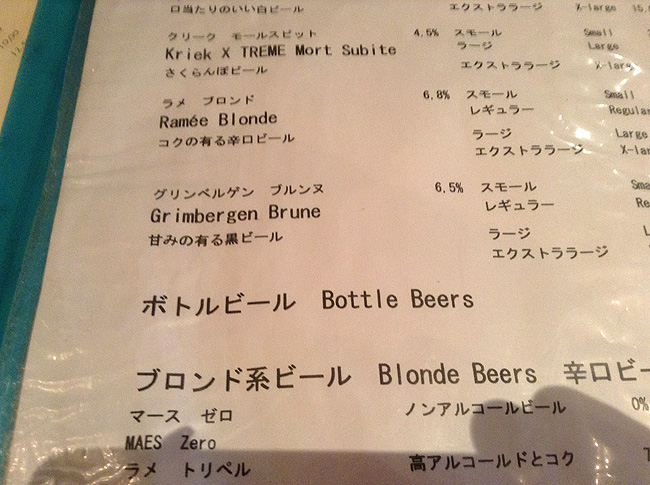 口当たりのいい白ビール エクストララージ X-large
クリーク モールスビット 4,5% スモール Small
Kriek X TREME Mort Subite ラージ Large
さくらんぼビール エクストララージ
ラメ ブロンド 6,8% スモール Small
Ramée Blonde レギュラー Regular
コクの有る辛口ビール ラージ Large
エクストララージ
グリンベルゲン ブルンヌ 6,5% スモール
Grimbergen Brune レギュラー
甘みの有る黒ビール ラージ
エクストララージ
ボトルビール Bottle Beers
ブロンド系ビール Blonde Beers 辛口ビー
マース ゼロ ノンアルコールビール 0%
MAES Zero
ラメ トリペル 高アルコールドとコク